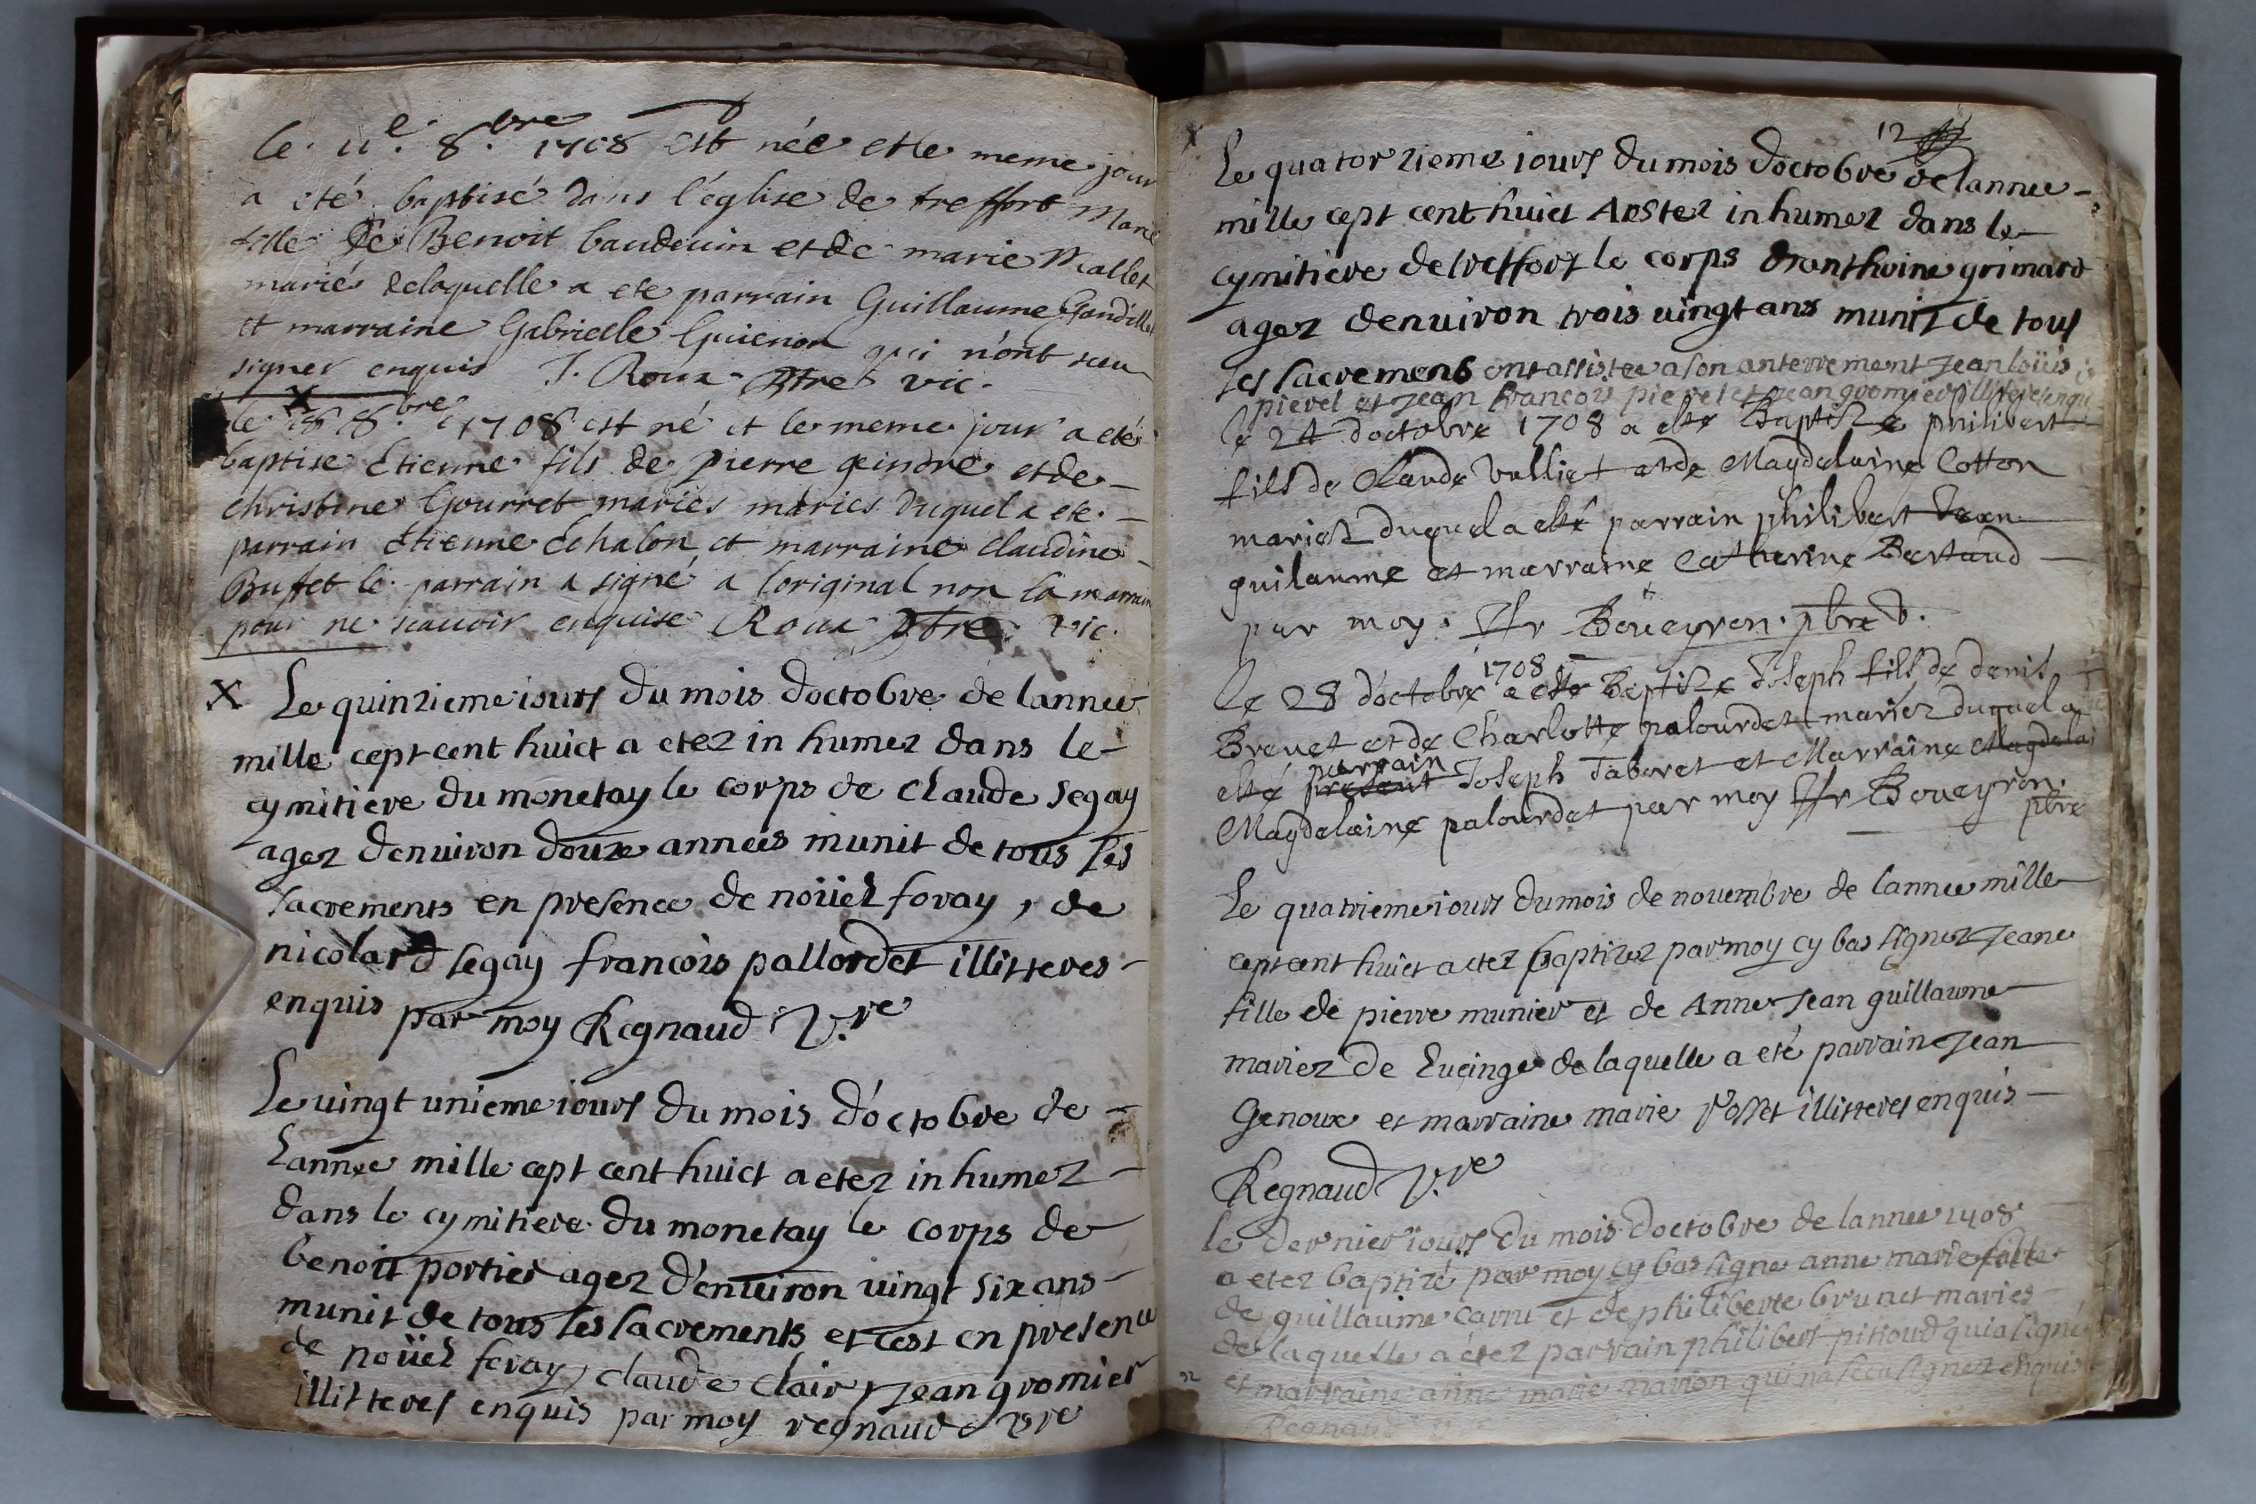 le 11e 8bre 1708 est née et le meme jour
a eté baptisé dans l'église de treffort Marie
fille De Benoit baudouin et de marie Mallet
mariés delaquelle a ete parrain Guillaume Gandillet
et marraine Gabrielle Guienon qui n'ont sceu
signer enquis J. Roux Ptre vic.
le 18 8bre 1708 est né et le meme jour a eté
baptise Etienne fils de pierre geindre et de
christine Gourret mariés mariés duquel a ete
parrain Etienne Echalon et marraine Claudine
Buffet le parrain a signé a loriginal non la marraine
pour ne scauoir enquise Roux Ptre vic.
X Le quinzieme iours du mois doctobre de lannee
mille cept cent huict a etez in humez dans le
cymitiere du monetay le corps de claude segay
agez denuiron douze années munit de tous les
sacrements en presence de noüel foray, de
nicolard segay francois pallordet illitteres
enquis par moy Regnaud V.re
Le uingt unieme iours du mois d'octobre de
Lannee mille cept cent huict a etez in humez
dans le cymitiere du monetay le corps de
benoit portier agez d'enuiron uingt six ans
munit de tous les sacrements et cest en presence
de noüel foray, claude clair, Jean gromier
illitteres enquis par moy regnaud vre
12
Le quatorzieme iours du mois doctobre de lannee
mille cept cent huict A estez in humez dans le
cymitiere de treffort le corps d'anthoine grimard
agez denuiron trois uingt ans munit de tous
les sacrements ont assistee a son anterrement Jean loüis
pierel et Jean francois pierel et Jean gromier illitteres enquis
le 24 doctobre 1708 a esté Baptizé philibert
fils de Claude Vulliet et de Magdelaine Cotton
mariez duquel a esté parrain philibert Jean
guilaume et marraine Catherine Bertaud
par moy. Fr Boueyron. pbre
1708
Le 28 d'octobre a esté Baptize Joseph fils de denis
Brevet et de Charlotte palourdet mariéz duquel a
parrain
esté present Joseph Taboret et Marraine Magdelai
Magdelaine palourdet par moy Fr Boueyron.
pbre
Le quatrieme iours du mois de nouembre de lannee mille
cept cent huict a etez baptizez par moy cy bas signez Jeane
fille de pierre munier et de Anne Jean guillaume
mariez de Lucinge de laquelle a eté parrain Jean
Genoux et marraine marie rosset illitteres enquis
Regnaud V.re
le dernier iours du mois doctobre de lannee 1708
a etez baptizé par moy cy bas signe anne marie fille
de guillaume carru et de philiberte brunet mariés
de laquelle a étez parrain philibert pittoud qui a signé
et marraine anne marie marion qui na sceu signez enquis
Regnaud